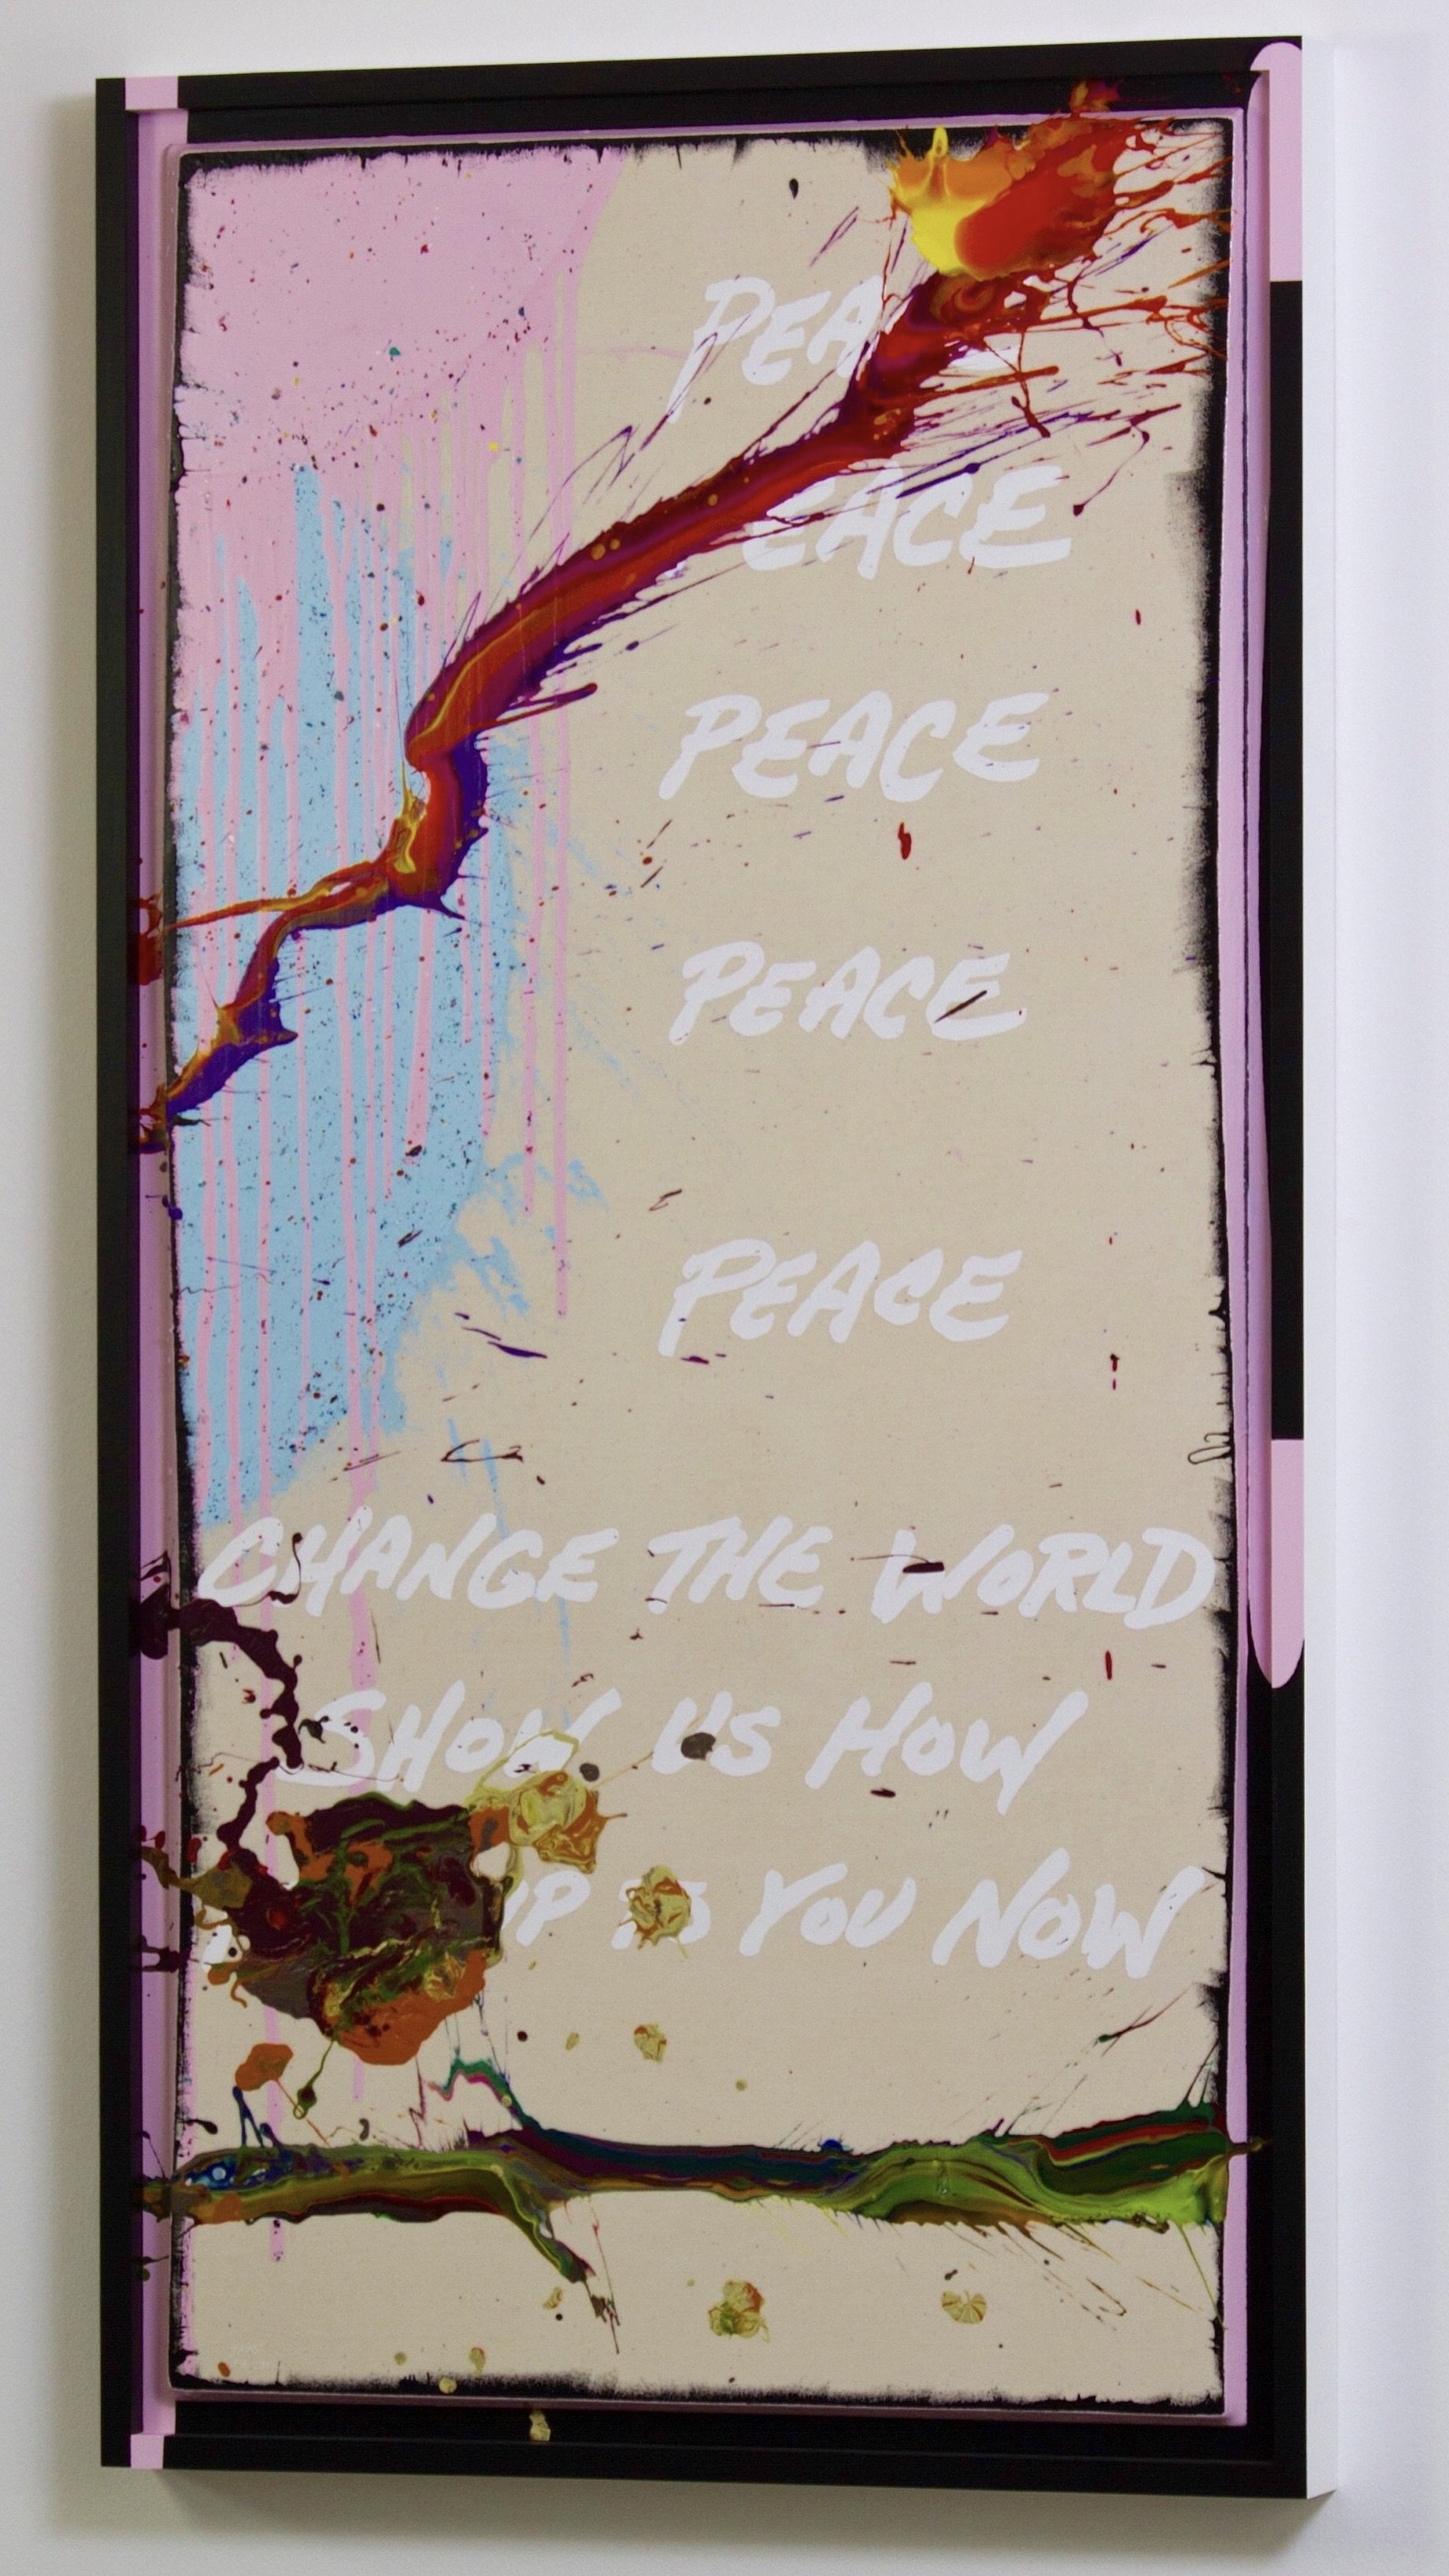 PEA
EACE
PEACE
PEACE
PEACE
CHANGE THE WORLD
SHOW US HOW
UP TO YOU NOW